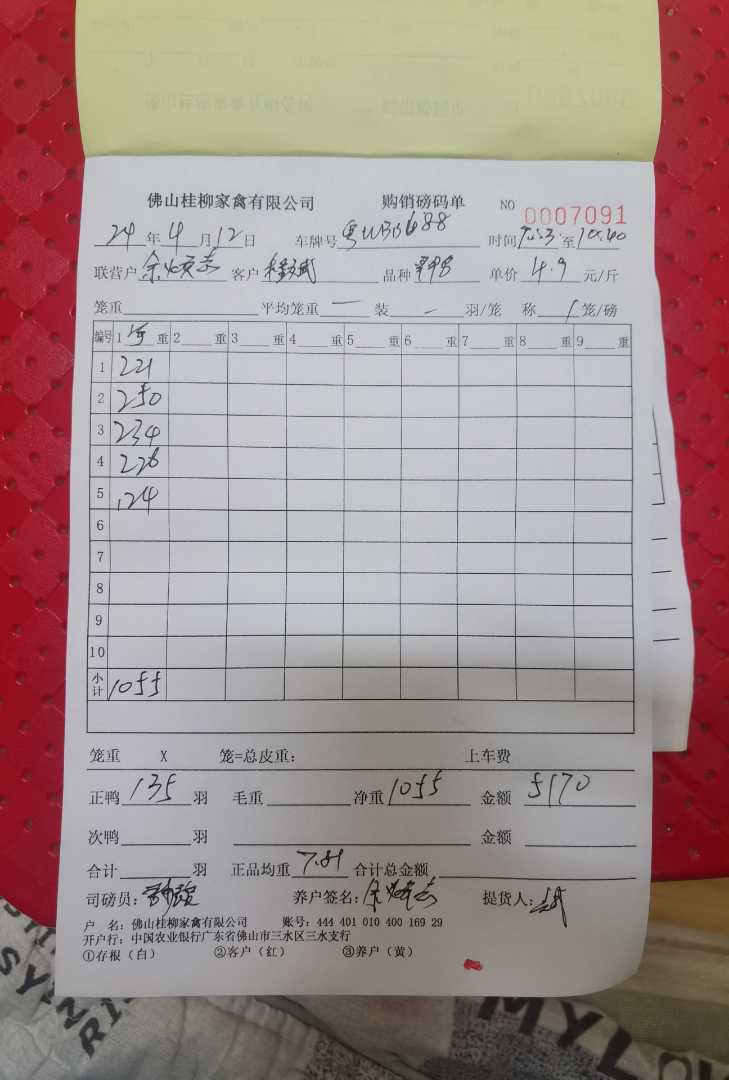 佛山桂柳家禽有限公司 购销磅码单 NO 0007091
24 年 4 月 12 日 车牌号 时间 至 10:40
联营户 客户 品种 单价 4.9 元/斤
笼重 平均笼重 — 装 — 羽/笼 称 1 笼/磅
编号 1 重 2 重 3 重 4 重 5 重 6 重 7 重 8 重 9 重
1 221
2 250
3 234
4 226
5 124
6
7
8
9
10
小计 1055
笼重 X 笼=总皮重: 上车费
正鸭 135 羽 毛重 净重 1055 金额 5170
次鸭 羽 金额
合计 羽 正品均重 7.81 合计总金额
司磅员: 养户签名: 提货人:
户 名: 佛山桂柳家禽有限公司 账号: 444 401 010 400 169 29
开户行: 中国农业银行广东省佛山市三水区三水支行
①存根（白） ②客户（红） ③养户（黄）
MYLO